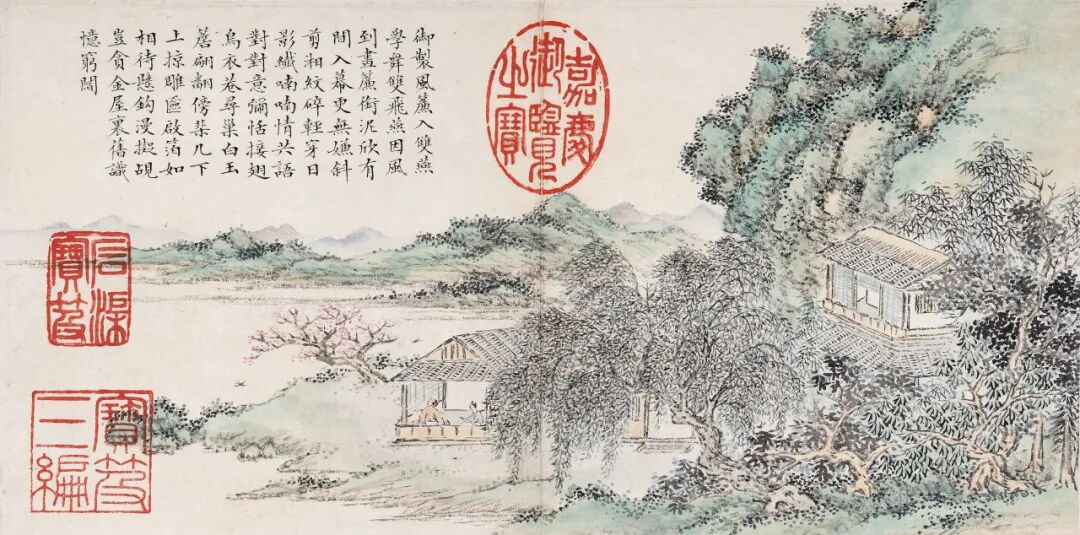 御製風簾入雙燕
學舞雙飛燕因風
到畫簾銜泥欣有
間入幕更無嫌斜
剪湘紋碎輕穿日
影纖喃喃情共語
對對意彌恬接翅
烏衣巷尋巢白玉
簷翩翻傍棊几下
上掠雕匳啟箔如
相待懸鉤漫擬覘
豈貪金屋裏舊識
憶窮閻
嘉慶
御覽
之寶
石渠
寶笈
寶笈
三編